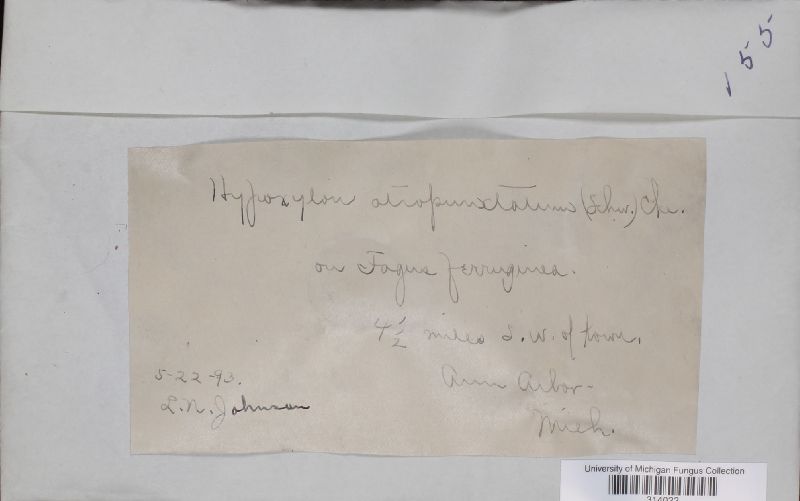 155
Hypoxylon atropunctatum (Schw.) Cke.
on Fagus ferruginea.
4 1/2 miles S.W. of town.
Ann Arbor-
Mich.
5-22-93.
L.N. Johnson
University of Michigan Fungus Collection
314022